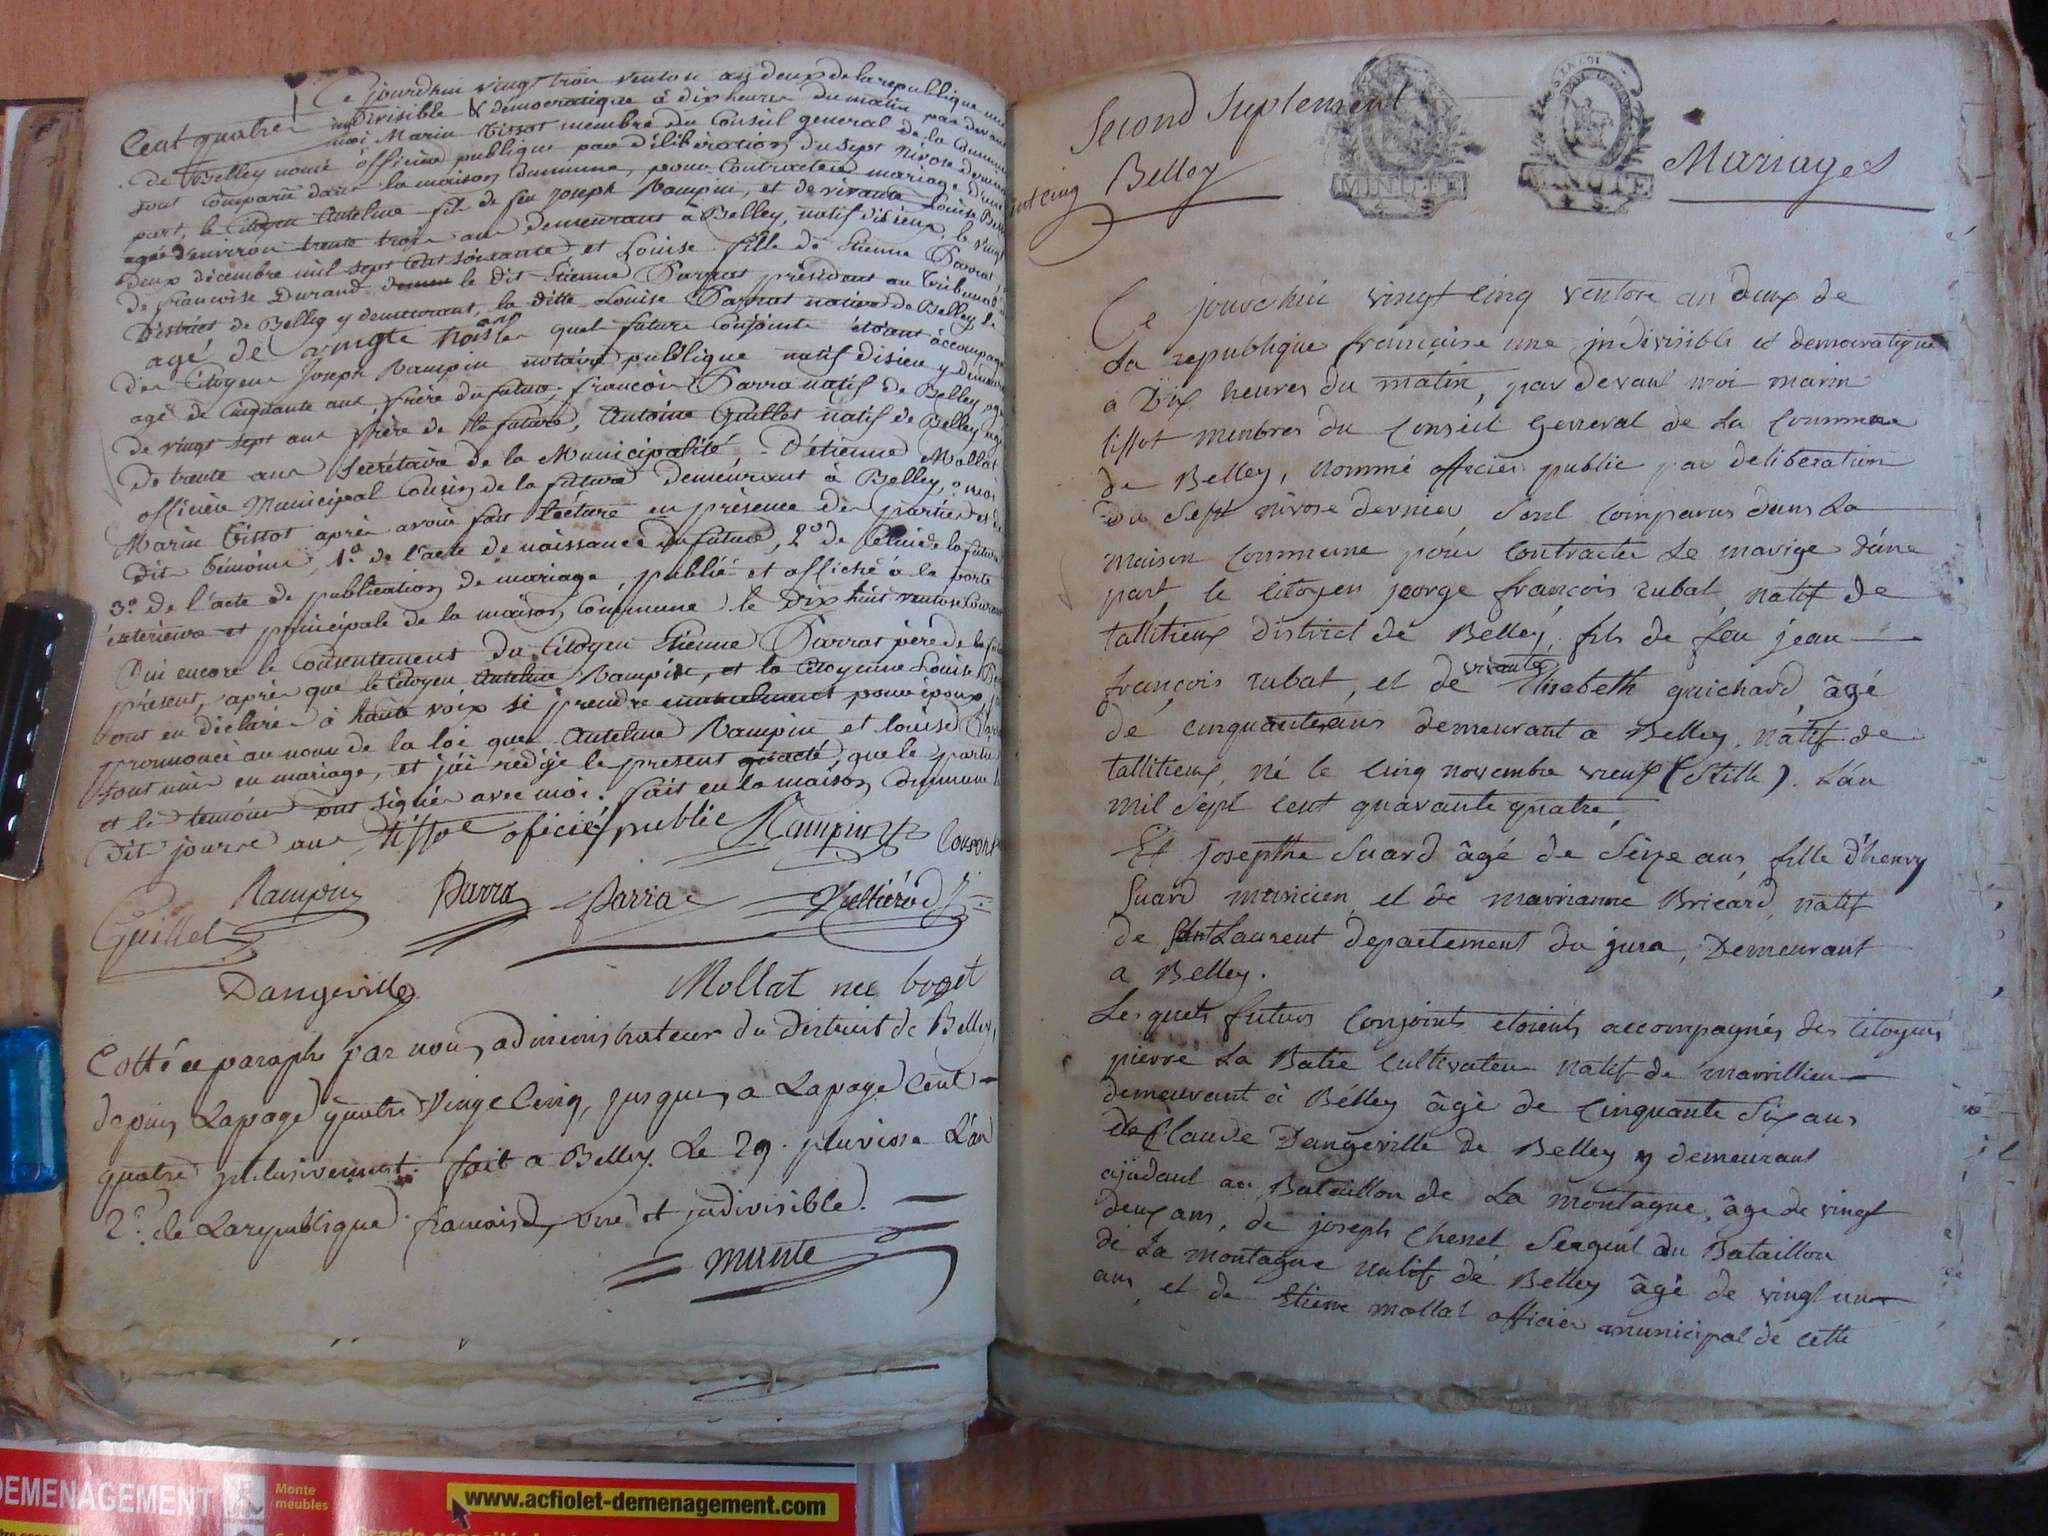 Cent quatre
Ce jourdhui vingt trois ventose an deux de la republique une
indivisible & democratique à dix heures du matin par devant
moi Marin Tissot membre du Conseil general de la Commune
de Belley nomé officier publique par délibération du sept Nivose dernier
sont comparu dans la maison Commune, pour Contracter mariage d'une
part, le Citoyen Antelme fils de feu Joseph Rampin, et de vivante Louise
agé d'environ trente trois ans demeurant à Belley, natif disieu, le vingt
deux décembre mil sept Cent soixante et Louise fille de Etienne Parrat,
de francoise Durand le dit Etienne Parrat président au Tribunal
District de Belley y demeurant, la ditte Louise Parrat native de Belley
agé de vingte trois ans quel future Conjoints étoient accompag
des Citoyens Joseph Rampin notaire publique natif disieu y demeur
agé de Cinquante ans, frère du futur, francois Parra natif de Belley, agé
de vingt sept ans frère de la future, Antoine Guillet natif de Belley agé
de trente ans Secrétaire de la Municipalité, D'étienne Mollat
officier Municipal Cousin de la future demeurant à Belley, moi
Marin Tissot après avoir fait lecture en présence des parties et des
dits témoins, 1.º de l'acte de naissance du future, 2º de Celui de la future
3º de l'acte de publication de mariage, publié et affiché a la porte
exterieure et principale de la maison Commune le dix huit ventose Courant
Oui encore le Consentement du Citoyen Etienne Parrat père de la
présent, après que le Citoyen Antelme Rampin, et la Citoyenne Louise
ont eu déclaré à haute voix se prendre mutuellement pour époux, j'ai
prononcé au nom de la loi que Antelme Rampin et Louise
sont unis en mariage, et j'ai rédigé le présent acte, que les parties
et les temoins ont signés avec moi. fait en la maison Commune
dit jour an Tissot oficier public Rampin
Guillet Rampin Parra Parra
Dangeville Mollat nee boget
Cotté et paraphé par nous administrateur du district de Belley,
depuis la page quatre vingt Cinq, jusques a la page Cent
quatre inclusivement. fait a Belley. Le 29. pluviose L'an
2.e de la republique francoise, une et indivisible.
Second Suplement
Belley
cent cinq
MINUTE
4 S.
MINUTE
4 S.
Mariages
Ce jourdhui vingt cinq ventose an deux de
La republique française une indivisible et democratique
a Dix heures du matin, par devant moi marin
tissot menbres du Conseil General de La Commune
de Belley, nommé officier public par deliberation
du Sept nivose dernier, sont Comparus dans La
maison Commune pour Contracter Le mariage d'une
part, le Citoyen jeorge françois rubat, natif de
tallitieux district de Belley, fils de feu jean
françois rubat, et de vivante Elisabeth guichard, âgé
de cinquante ans demeurant a Belley, natif de
tallitieux, né le Cinq novembre vieux (Stille). L'an
mil Sept Cent quarante quatre,
Et josepthe Suard âgé de Seize ans, fille d'henry
Suard musicien, et de marrianne Bricard, natif
de Saint Laurent departement du jura, Demeurant
a Belley.
Lesquels futurs Conjoints etoients accompagnés des Citoyens
pierre La Batie Cultivateur natif de marrillieu
demeurant à Belley âgé de Cinquante Six ans
de Claude Dangeville de Belley y demeurant
ajudant au Bataillon de La montagne, âge de vingt
deux ans, de joseph Chenel Sergent du Bataillon
de La montagne natif de Belley âgé de vingt un
ans, et de Etiene mollat officier municipal de cette
DEMENAGEMENT
Monte
meubles
www.acfiolet-demenagement.com